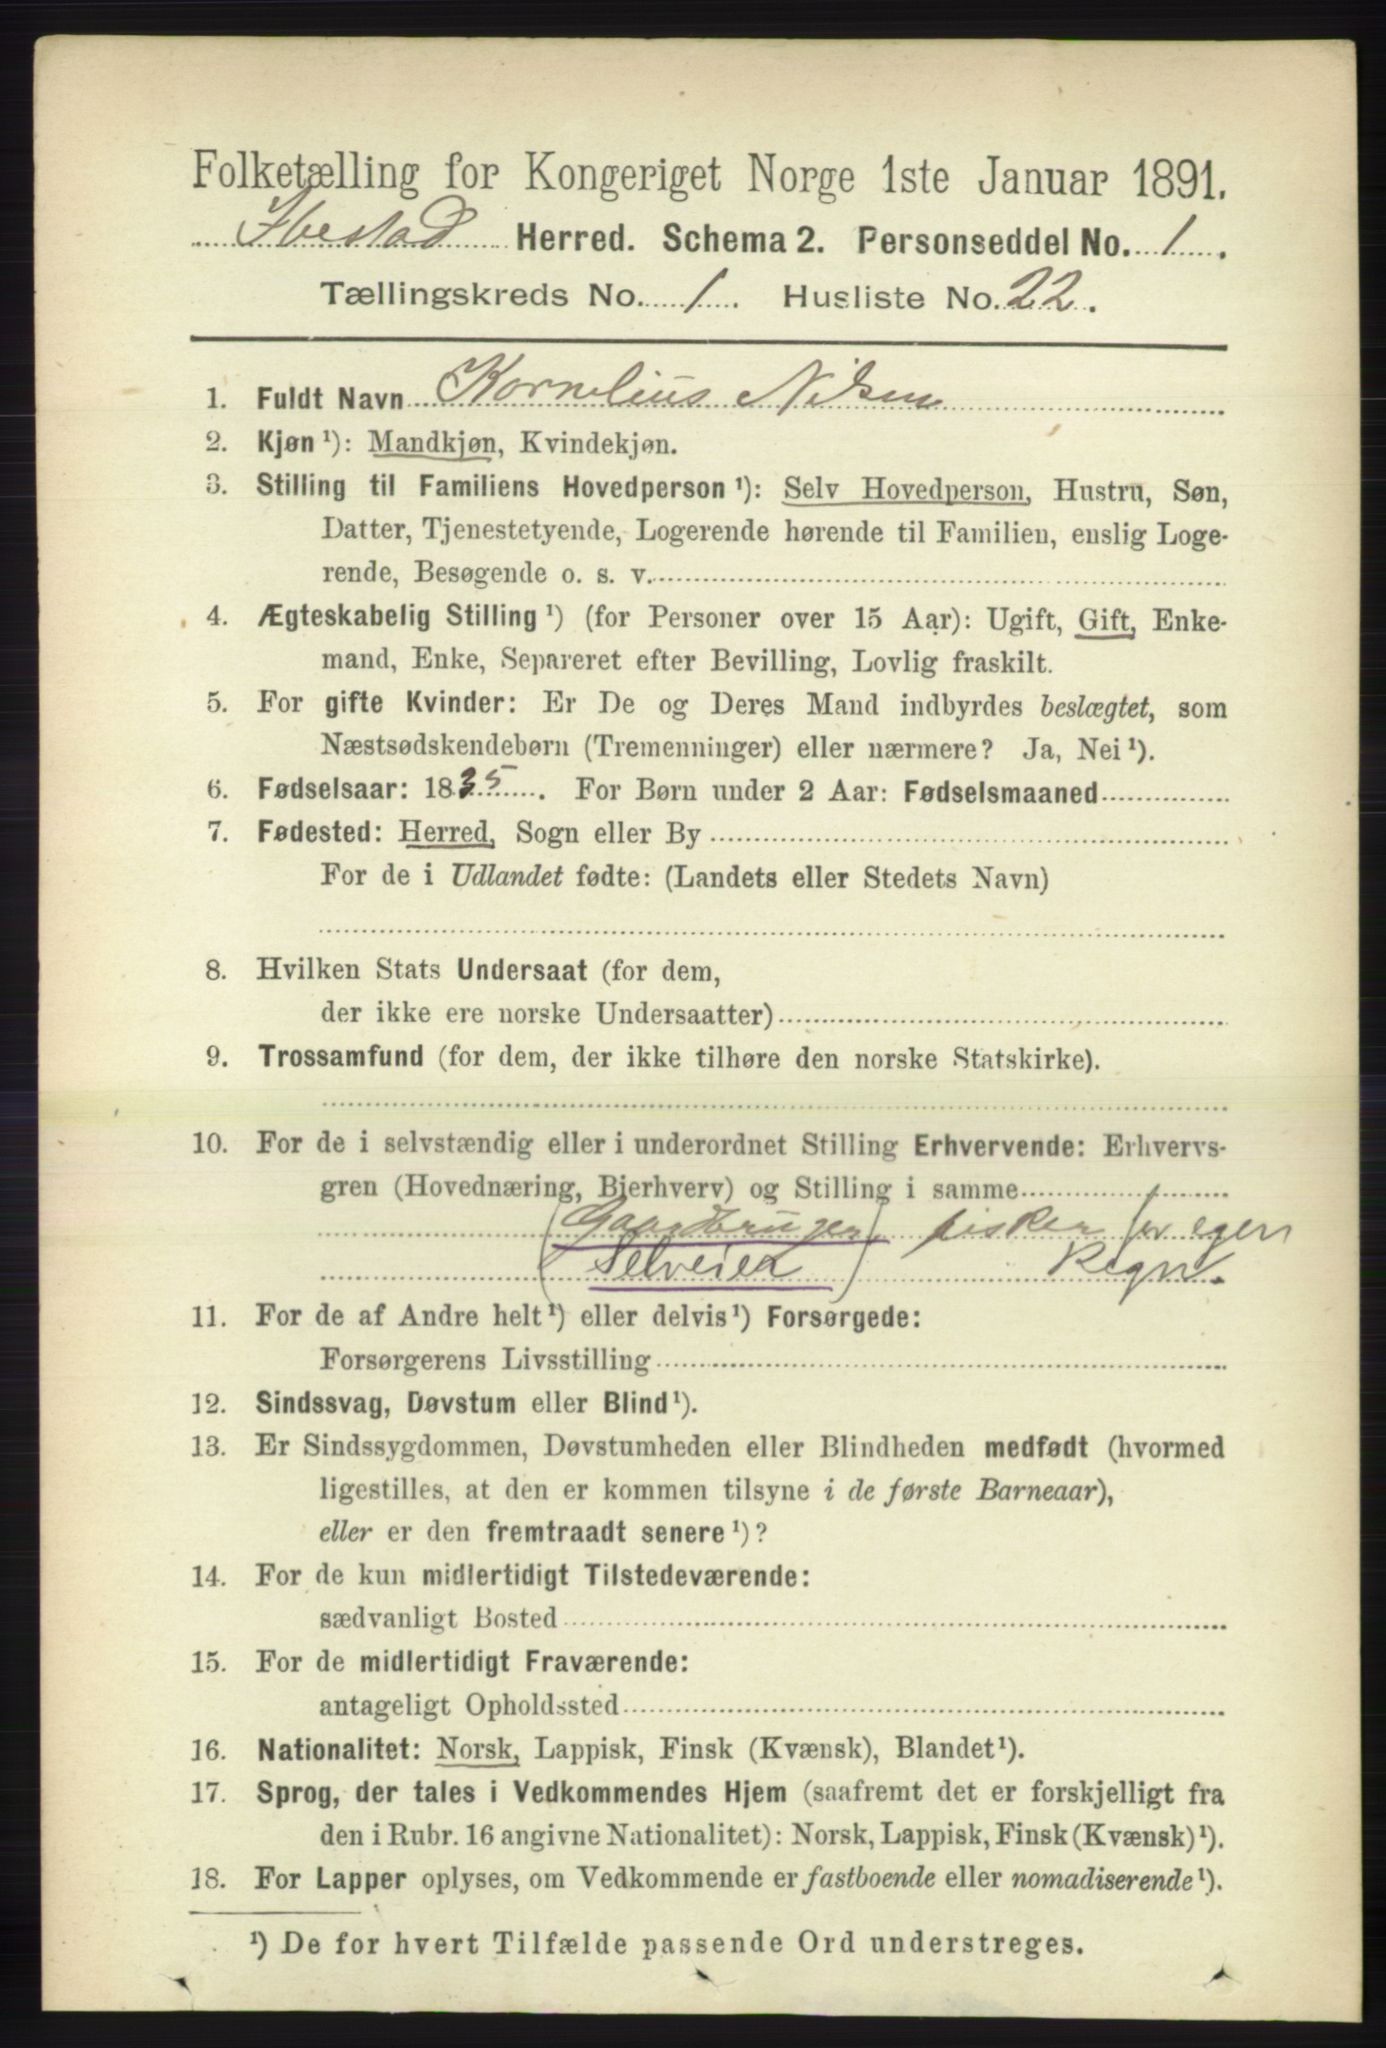 Folketælling for Kongeriget Norge 1ste Januar 1891.
Ibestad Herred. Schema 2. Personseddel No. 1.
Tællingskreds No. 1. Husliste No. 22.
1. Fuldt Navn Kornelius Nilsen
2. Kjøn ¹): Mandkjøn, Kvindekjøn.
3. Stilling til Familiens Hovedperson ¹): Selv Hovedperson, Hustru, Søn,
Datter, Tjenestetyende, Logerende hørende til Familien, enslig Loge-
rende, Besøgende o. s. v.
4. Ægteskabelig Stilling ¹) (for Personer over 15 Aar): Ugift, Gift, Enke-
mand, Enke, Separeret efter Bevilling, Lovlig fraskilt.
5. For gifte Kvinder: Er De og Deres Mand indbyrdes beslægtet, som
Næstsødskendebørn (Tremenninger) eller nærmere? Ja, Nei ¹).
6. Fødselsaar: 1835. For Børn under 2 Aar: Fødselsmaaned
7. Fødested: Herred, Sogn eller By
For de i Udlandet fødte: (Landets eller Stedets Navn)
8. Hvilken Stats Undersaat (for dem,
der ikke ere norske Undersaatter)
9. Trossamfund (for dem, der ikke tilhøre den norske Statskirke).
10. For de i selvstændig eller i underordnet Stilling Erhvervende: Erhvervs-
gren (Hovednæring, Bierhverv) og Stilling i samme
(Gaardbruger) fisker for egen
(Selveier) Regn.
11. For de af Andre helt ¹) eller delvis ¹) Forsørgede:
Forsørgerens Livsstilling
12. Sindssvag, Døvstum eller Blind ¹).
13. Er Sindssygdommen, Døvstumheden eller Blindheden medfødt (hvormed
ligestilles, at den er kommen tilsyne i de første Barneaar),
eller er den fremtraadt senere ¹)?
14. For de kun midlertidigt Tilstedeværende:
sædvanligt Bosted
15. For de midlertidigt Fraværende:
antageligt Opholdssted
16. Nationalitet: Norsk, Lappisk, Finsk (Kvænsk), Blandet ¹).
17. Sprog, der tales i Vedkommendes Hjem (saafremt det er forskjelligt fra
den i Rubr. 16 angivne Nationalitet): Norsk, Lappisk, Finsk (Kvænsk) ¹).
18. For Lapper oplyses, om Vedkommende er fastboende eller nomadiserende ¹).
¹) De for hvert Tilfælde passende Ord understreges.